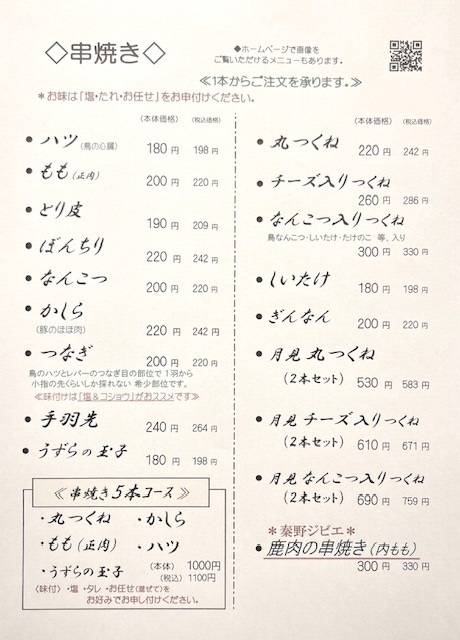 ◇串焼き◇
◆ホームページで画像を
ご覧いただけるメニューもあります。
≪1本からご注文を承ります。≫
＊お味は「塩・たれ・お任せ」をお申付けください。
(本体価格) (税込価格)
● ハツ (鳥の心臓) 180円 198円
● もも (正肉) 200円 220円
● とり皮 190円 209円
● ぼんちり 220円 242円
● なんこつ 200円 220円
● かしら 220円 242円
(豚のほほ肉)
● つなぎ 200円 220円
鳥のハツとレバーのつなぎ目の部位で 1羽から
小指の先くらいしか採れない 希少部位です。
≪味付けは「塩&コショウ」がおススメです≫
● 手羽先 240円 264円
● うずらの玉子 180円 198円
≪串焼き5本コース≫
・丸つくね ・かしら
・もも (正肉) ・ハツ
・うずらの玉子 (本体) 1000円
(税込) 1100円
〈味付〉・塩・タレ・お任せ(混ぜて)を
お好みでお申し付けください。
(本体価格) (税込価格)
● 丸つくね 220円 242円
● チーズ入りつくね
260円 286円
● なんこつ入りつくね
鳥なんこつ・しいたけ・たけのこ 等、入り
300円 330円
● しいたけ 180円 198円
● ぎんなん 200円 220円
● 月見 丸つくね
(2本セット) 530円 583円
● 月見 チーズ入りつくね
(2本セット) 610円 671円
● 月見 なんこつ入りつくね
(2本セット) 690円 759円
＊秦野ジビエ＊
● 鹿肉の串焼き(内もも)
300円 330円